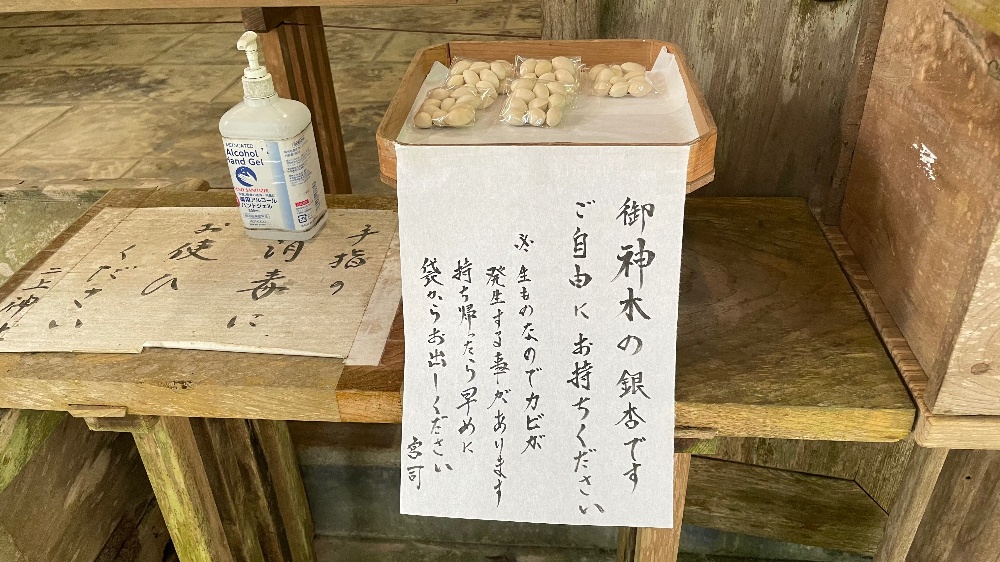 御神木の銀杏です
ご自由にお持ちください
※生ものなのでカビが
発生する事があります
持ち帰ったら早めに
袋からお出しください
宮司
手指の
消毒に
お使ひ
ください
二上神
Alcohol
Hand Gel
薬用アルコール
ハンドジェル